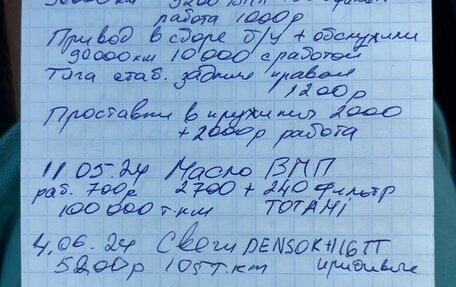 работа 1000р
Привод в сборе б/у + обслужили
90000км 10 000 с работой
Тяга стаб. задняя правая
1200р
Проставки в пружины 2000
+ 2000р работа
11 05-24 Масло ВМП
раб. 700р 2700 + 240 Фильтр
100 000 т.км TOTAHI
4,06-24 Свечи DENSO KH16TT
5200р 105 т.км иридивые